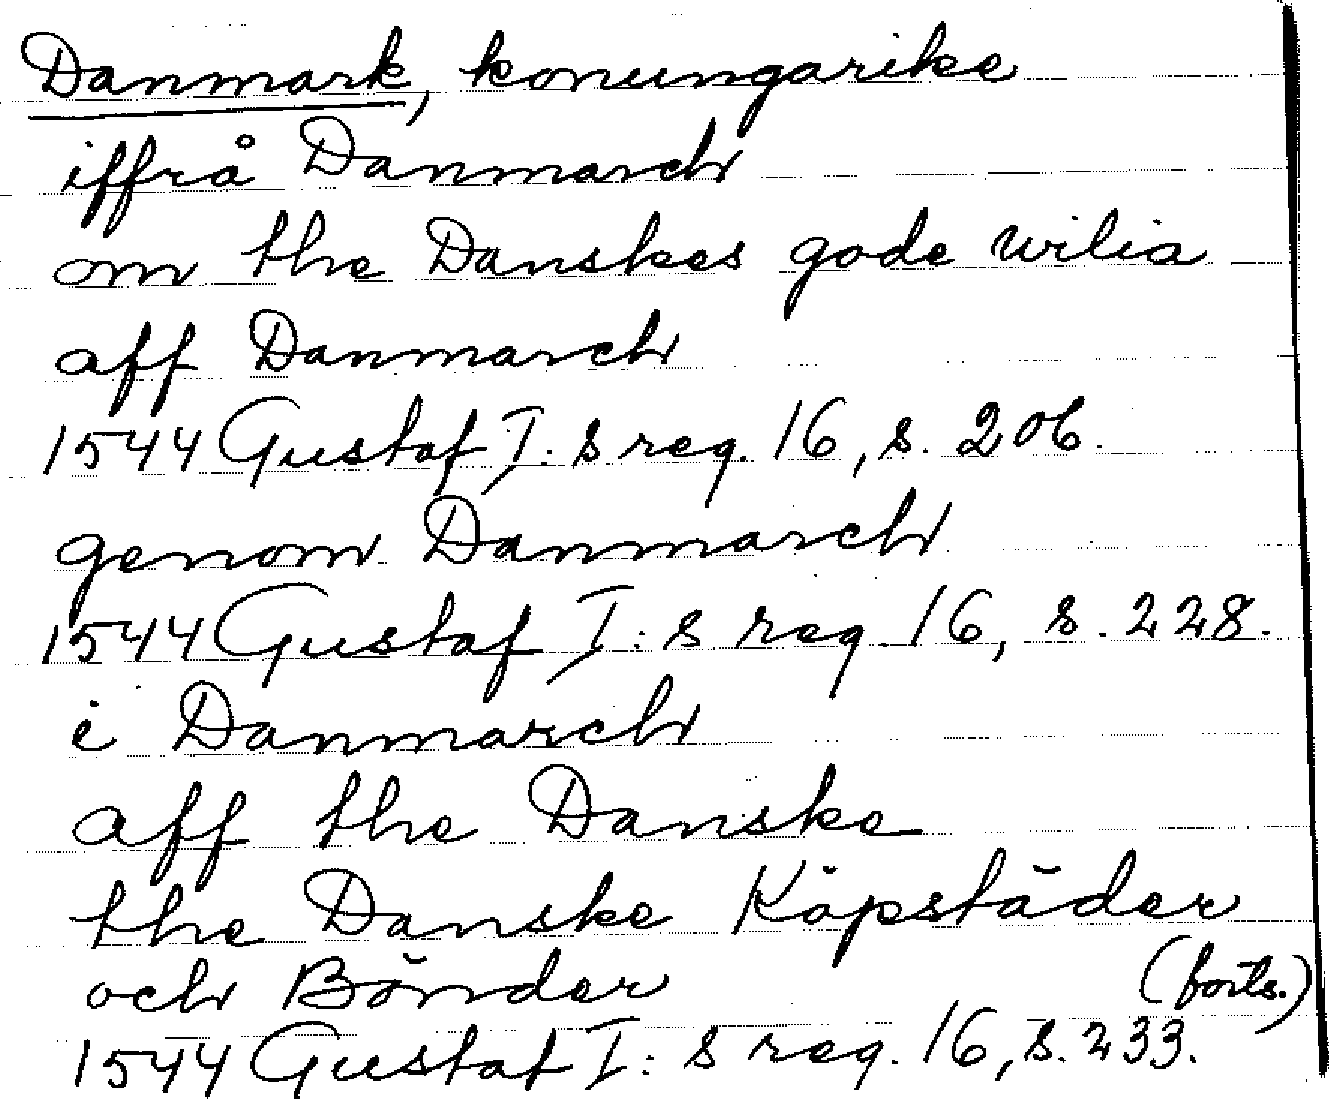 Danmark, konungarike
iffrå Danmarch
om the Danskes gode wilia
aff Danmarch
1544 Gustaf I: s reg. 16, s. 206.
genom Danmarch
1544 Gustaf I: s reg. 16, s. 228.
i Danmarch
aff the Danske
the Danske Köpstäder
och Bönder (forts.)
1544 Gustaf I: s reg. 16, s. 233.